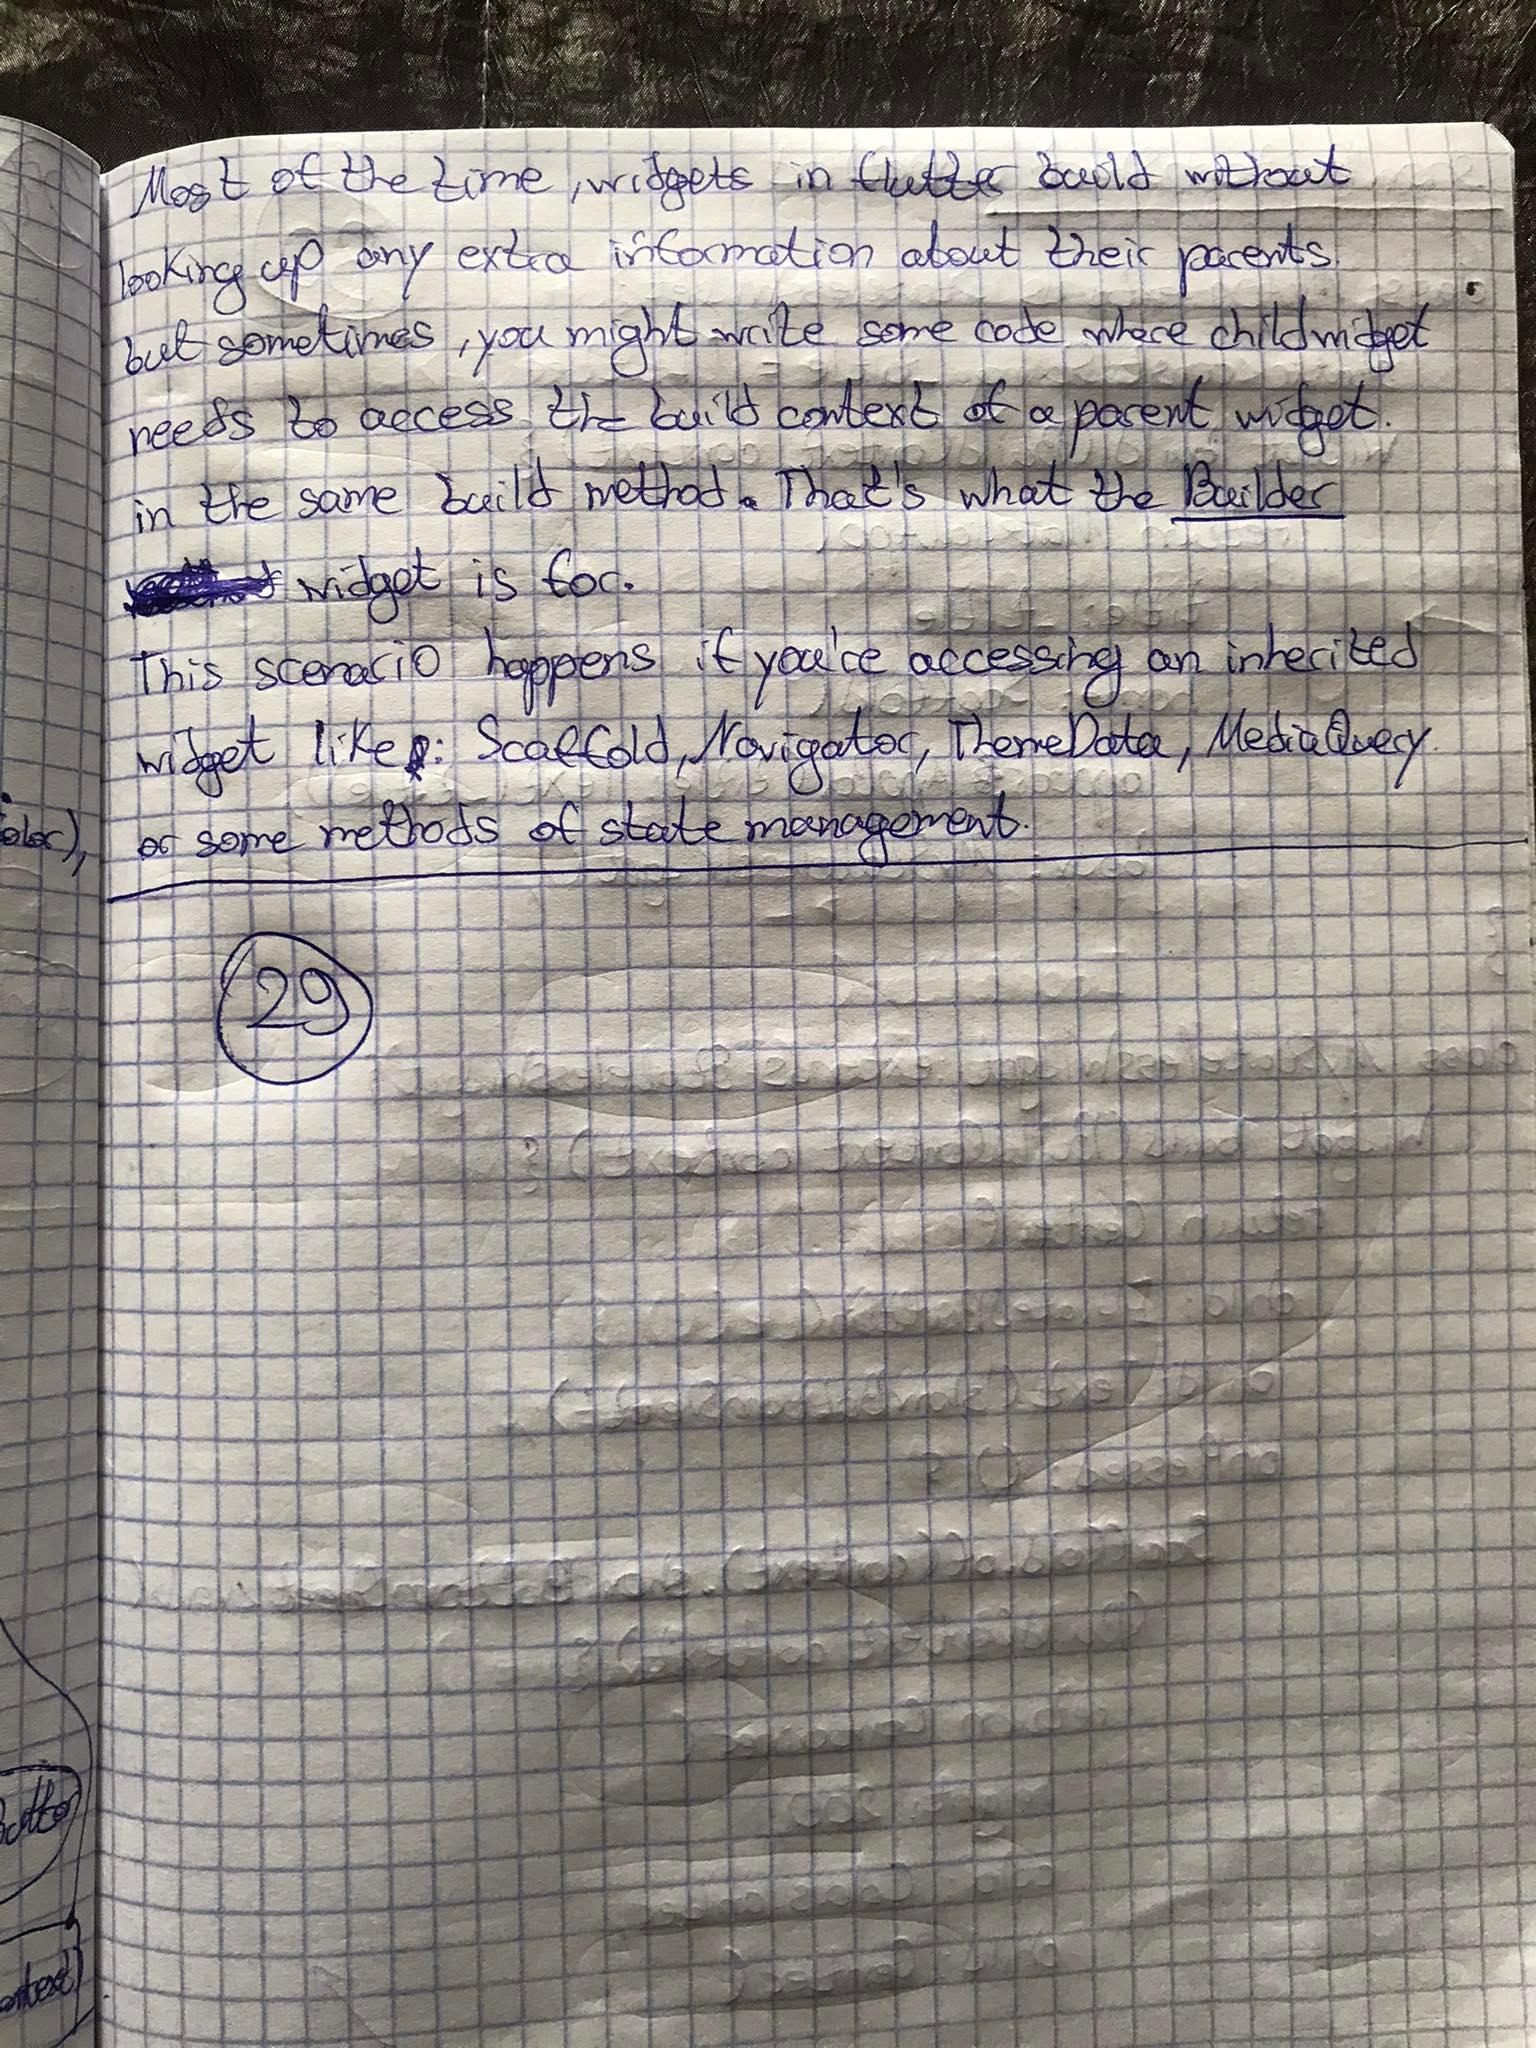 Most of the time, widgets in flutter build without
looking up any extra information about their parents.
but sometimes, you might write some code where child widget
needs to access the build context of a parent widget.
in the same build method. That's what the Builder
widget is for.
This scenario happens if you're accessing an inherited
widget like: Scaffold, Navigator, ThemeData, MediaQuery
or some methods of state management.
29
olor),
ontext)